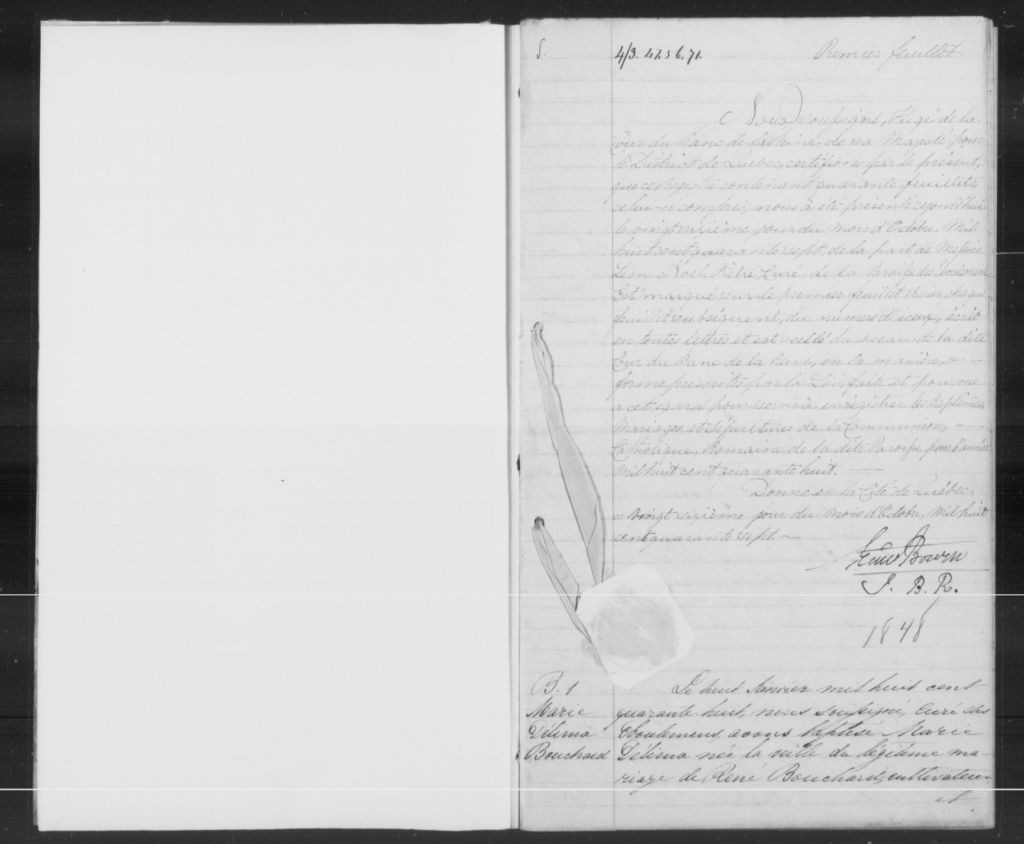 S.
4/3. 41. 56. 71.
Premier feuillet
Nous Soussigné, Juge de la
Cour du Banc de la Reine de sa Majesté pour
le District de Québec, certifions par le présent,
que ce Registre contenant quarante feuillets,
celui-ci compris, nous à été présenté cejourd'hui
le vingt sixième jour du mois d'Octobre, Mil
huit cent quarante sept, de la part de Messire
Léon Noel, Prêtre, Curé de la Paroisse des Eboulemens
Est marqué sur le premier feuillet et sur chaque
feuillet subséquent, du numero d'iceux, écrit
en toutes lettres et est scellé du sceau de la dite
Cour du Banc de la Reine, en la manière,
forme prescrites par la Loi, faite et pourvue
a cet égard pour servir à enrégistrer les Baptêmes,
Mariages, et Sépultures de la Communion,
Catholique, Romaine de la dite Paroisse pour l'année
Mil huit cent quarante huit.
Donné en la Cité de Québec,
ce vingt sixième jour du mois d'Octobre, Mil huit
cent quarante sept.
Bowen
J. B. R.
1848
B. 1
Marie
Délima
Bouchard
Le huit Janvier mil huit cent
quarante huit, nous soussigné, Curé des
Eboulemens, avons baptisé Marie
Délima née la veille du légitime ma-
riage de René Bouchard, cultivateur
et